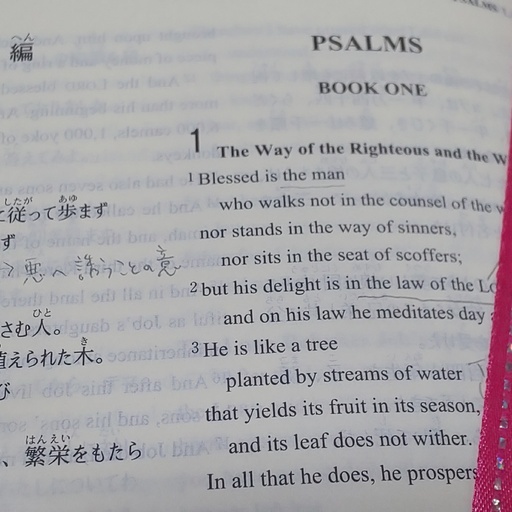 へん
編
したが あゆ
従って歩まず
ず
悪へ誘うことの
ひと
さむ人。
き
植えられた木。
び
はんえい
、繁栄をもたら
PSALMS
BOOK ONE
1 The Way of the Righteous and the W
1 Blessed is the man
who walks not in the counsel of the w
nor stands in the way of sinners,
nor sits in the seat of scoffers;
2 but his delight is in the law of the Lo
and on his law he meditates day
3 He is like a tree
planted by streams of water
that yields its fruit in its season,
and its leaf does not wither.
In all that he does, he prospers